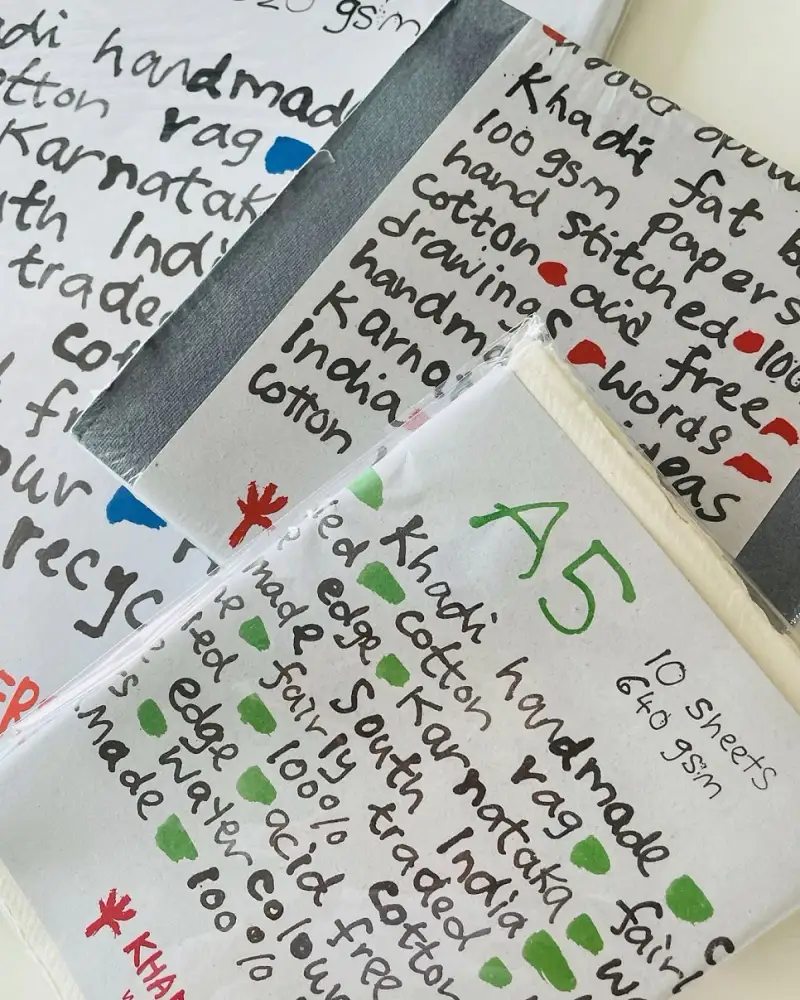 20 gsm
handmad
otton rag
Karnatak
uth Indi
trade
cot
fr
our
recyc
ER
Khadi fat b
100 gsm papers
hand stitched 100
cotton acid free
drawings words
handm ideas
Karna
India
cotton
A5
10 sheets
640 gsm
Khadi handmade c
cotton rag fairl
edge Karnataka w
made South India
fairly traded
red 100% cotton
edge acid free
s watercolour
made 100%
KHA